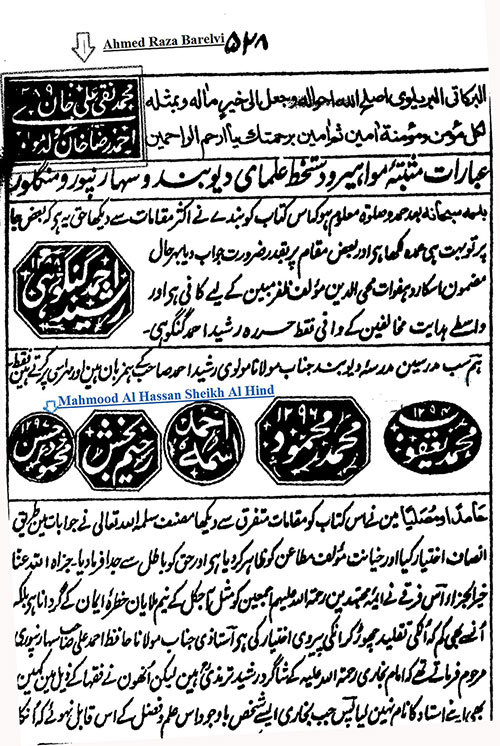 Ahmed Raza Barelvi
۵۲۸
محمد نقی علی خان
احمد رضا خان ولد
البرکاتی البریلوی اصلح الله احواله وجعل الی خیر ماله وبمثله
لکل مؤمن ومؤمنة امین ثم امین برحمتك یا ارحم الراحمین
عبارات مثبتۂ مواہیر و دستخط علمای دیوبند و سہارنپور و منگلور
بسمہ سبحانہ بعد حمد و صلوۃ معلوم ہو کہ اس کتاب کو بندے نے اکثر مقامات سے دیکھا حق یہ ہے کہ بعض جا
پر تو بہت ہی عمدہ لکھا ہی اور بعض مقام پر بقدر ضرورت جواب دیا بہر حال
مضمون اسکا رد ہفوات محی الدین مؤلف ظفر مبین کے لیے کافی ہی اور
واسطے ہدایت مخالفین کے وافی فقط حررہ رشید احمد گنگوہی۔
رشید احمد گنگوہی
ہم سب مدرسین مدرسۂ دیوبند جناب مولانا مولوی رشید احمد صاحب کے ہمزبان ہین اور مہر اسی پر کرتے ہین فقط
Mahmood Al Hassan Sheikh Al Hind
محمد یعقوب
محمد محمود ۱۲۹۶
اسمہ احمد
رحیم بخش
محمود حسن ۱۲۹۰
حامدا ومصلیا مین نے اس کتاب کو مقامات متفرق سے دیکھا مصنف سلمہ اللہ تعالی نے جوابات مین طریق
انصاف اختیار کیا اور خیانت مؤلف مطاعن کو ظاہر کر دیا ہی اور حق کو باطل سے جدا فرما دیا۔ جزاہ اللہ عنا
خیر الجزاء اس فرقے نے ایمۂ مجتہدین رحمۃ اللہ علیہم اجمعین کو مثل آجکل کے نیم ملایان خطرۂ ایمان کے گردانا ہی بلکہ
اُنسے بھی کم کہ اُنکی تقلید چھوڑ کر انکی پیروی اختیار کی ہی استاذی جناب مولانا حافظ احمد علی صاحب سہارنپوری
مرحوم فرماتے تھے کہ امام بخاری رحمۃ اللہ علیہ کے شاگرد رشید ترمذی ہین لیکن اُنھون نے فقہا کے ذیل مین کہین
بھی اپنے استاد کا نام نہین لیا پس جب بخاری ایسے شخص باوجود اس علم و فضل کے اس قابل نہوئے کہ اُنکا